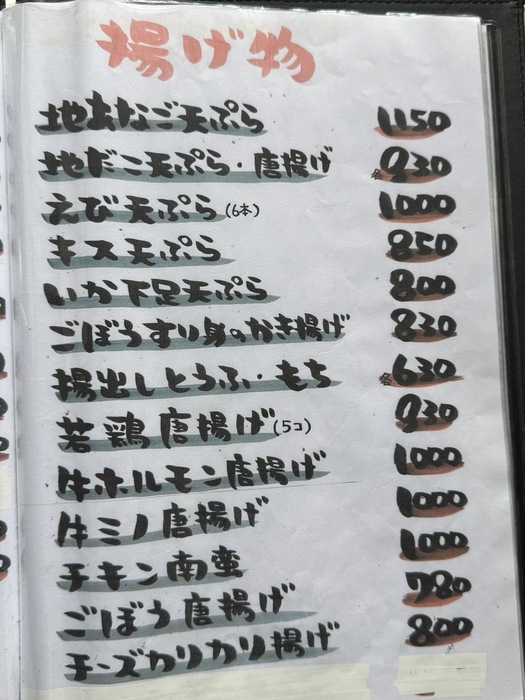 揚げ物
地あなご天ぷら 1150
地だこ天ぷら・唐揚げ 各930
えび天ぷら(6本) 1000
キス天ぷら 850
いか下足天ぷら 800
ごぼうすり身のかき揚げ 830
揚出しとうふ・もち 各630
若鶏唐揚げ(5コ) 930
牛ホルモン唐揚げ 1000
牛ミノ唐揚げ 1000
チキン南蛮 1000
ごぼう唐揚げ 780
チーズカリカリ揚げ 800